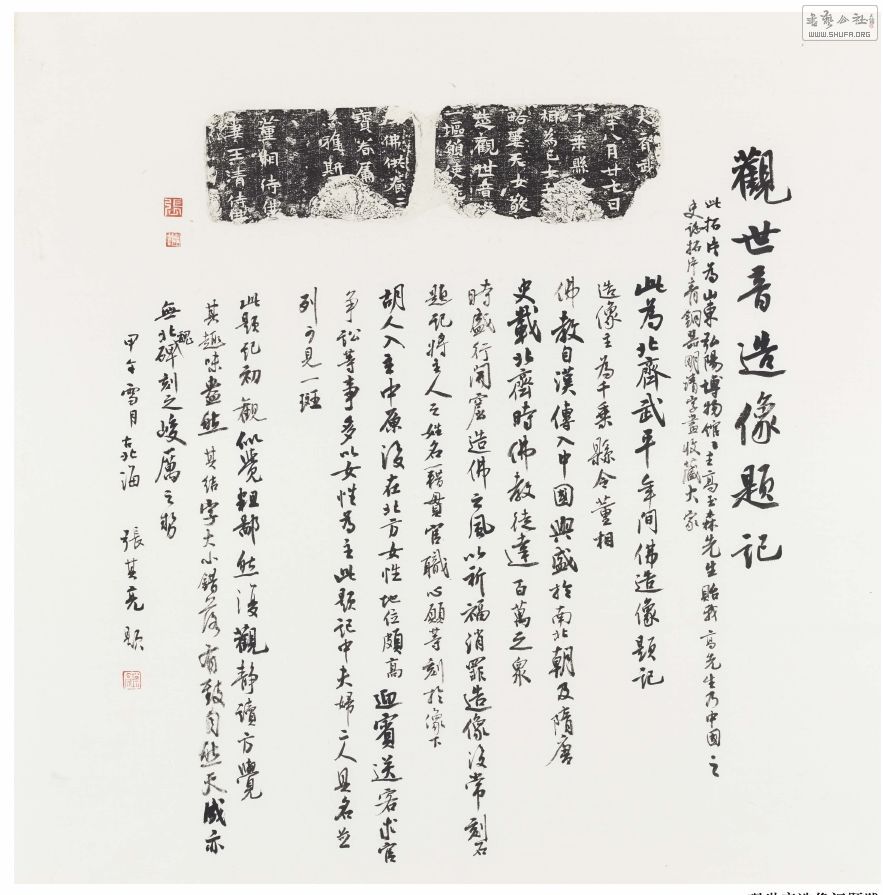 書藝公社
WWW.SHUFA.ORG
觀世音造像題記
此拓片為山東弘陽博物館館主高玉森先生貽我高先生乃中國之
史誌拓片青銅器明清字畫收藏大家
大齊武
年八月廿七日
千乘縣
相為亡女
敬
造觀世音
一區
佛供養
寶眷屬
斯
董桐侍佛
妻王清侍佛
此為北齊武平年間佛造像題記
造像主為千乘縣令董相
佛教自漢傳入中國興盛於南北朝及隋唐
史載北齊時佛教徒達百萬之眾
時盛行開窟造佛之風以祈福消罪造像後常刻石
題記將主人之姓名籍貫官職心願等刻於像下
胡人入主中原後在北方女性地位頗高迎賓送客求官
爭訟等事多以女性為主此題記中夫婦二人具名並
列可見一斑
此題記初觀似覺粗鄙然後觀靜讀方覺
其趣味盎然其結字大小錯落有致自然天成亦
無北魏碑刻之峻厲之勢
甲午雪月古北海 張其亮題
張